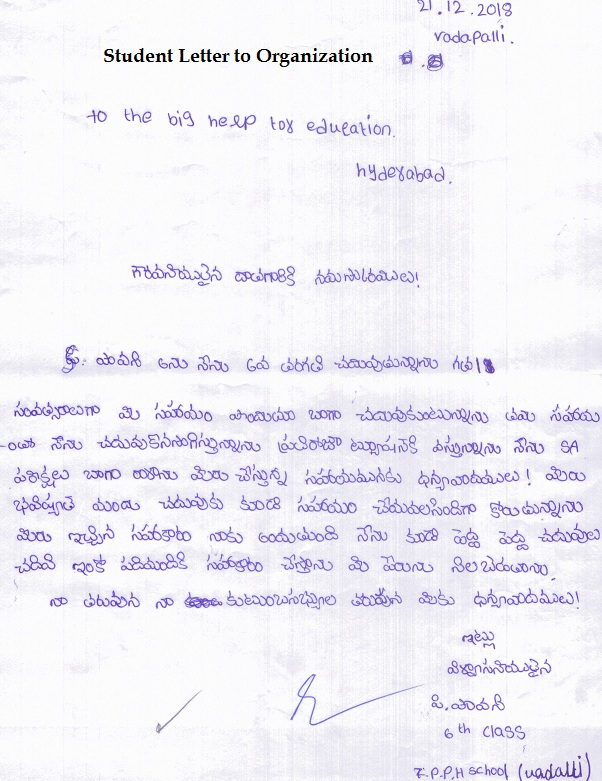 21.12.2018
vadapalli.
Student Letter to Organization
to the big help for education.
hyderabad.
గౌరవనీయులైన దాతగారికి నమస్కారములు!
పావని అను నేను 6వ తరగతి చదువుతున్నాను గత
సంవత్సరాలుగా మీ సహాయం పొందియు బాగా చదువుకుంటున్నాను తమ సహాయ
-ంతో నేను చదువుకొనసాగిస్తున్నాను ప్రతిరోజు ట్యూషన్‌కి వస్తున్నాను నేను SA
పరీక్షలు బాగా రాశాను మీరు చేస్తున్న సహాయమునకు ధన్యవాదములు! మీరు
భవిష్యత్ చదువుకు కుడా సహాయం చేయవలసిందిగా కోరుతున్నాను
మీరు ఇచ్చిన సహకారం నాకు అందుతుంది నేను కూడా పెద్ద పెద్ద చదువులు
చదివి ఇంకో పదిమందికి సహకారం చేస్తాను మీ పేరును నిలబెడుతాను.
నా తరుపున నా కుటుంబసభ్యుల తరుపున మీకు ధన్యవాదములు!
ఇట్లు
విశ్వాసనీయులైన
పి.పావని
6th class
Z.P.P.H school (vadalli)